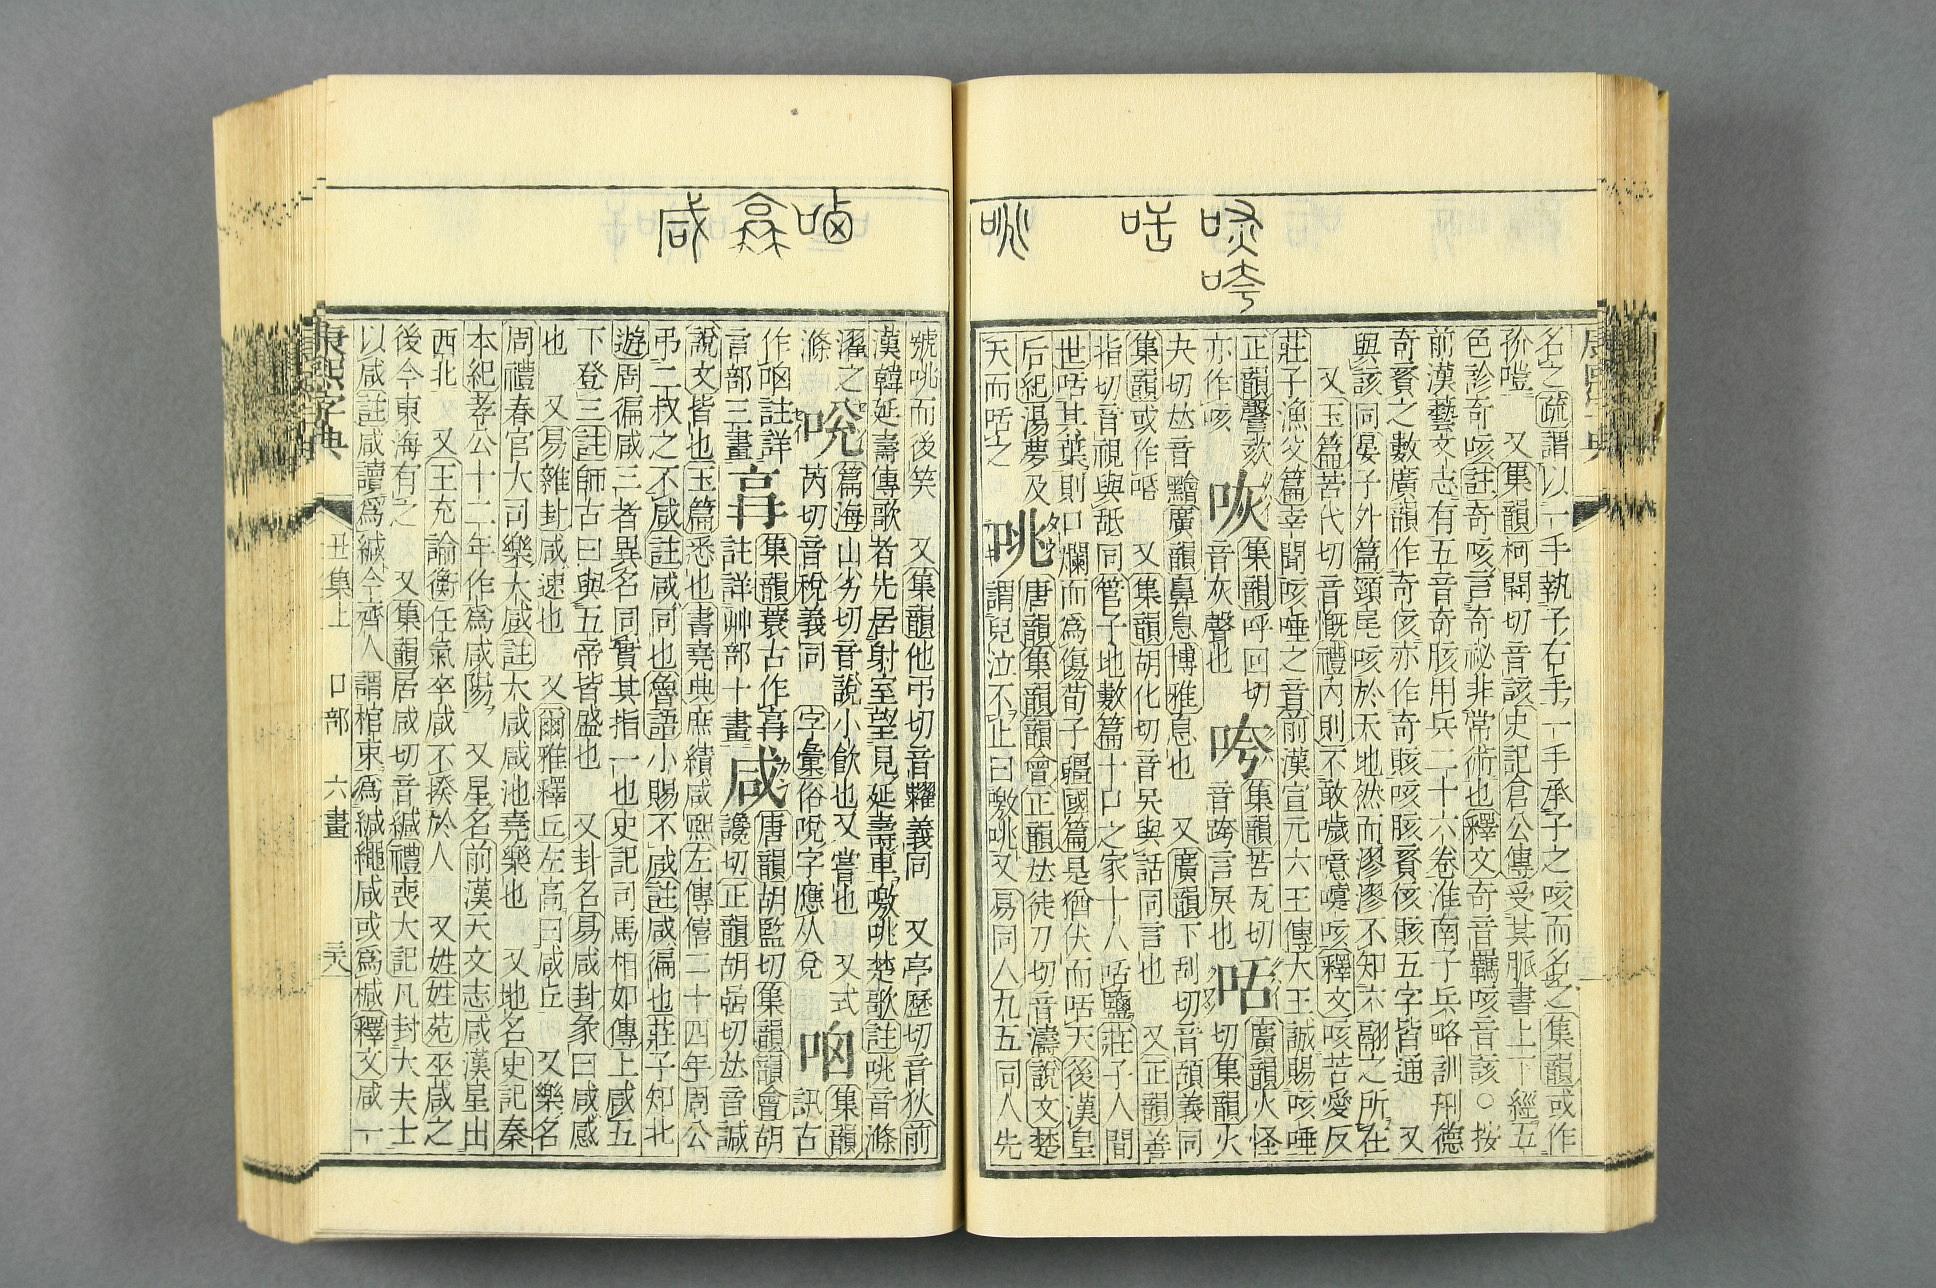 咴咵
咶
咷
名之疏謂以一手執子右手一手承子之咳而名之集韻或作
又集韻柯開切音該史記倉公傳受其脈書上下經五
色診奇咳註奇咳言奇祕非常術也釋文奇音羈咳音該○按
前漢藝文志有五音奇胲用兵二十六卷淮南子兵略訓刑德
奇賌之數廣韻作奇侅亦作奇賅咳胲賌侅賅五字皆通 又
與該同晏子外篇頸尾咳於天地然而漻漻不知六翮之所在
又玉篇苦代切音慨禮內則不敢噦噫嚏咳釋文咳苦愛反
莊子漁父篇幸聞咳唾之音前漢宣元六王傳大王誠賜咳唾
正韻謦欬
亦作咳
咴
集韻呼回切
音灰聲也
咵
集韻苦瓦切
音跨言戾也
咶
廣韻火怪
切集韻火
夬切𠀤音黵廣韻鼻息博雅息也 又廣韻下刮切音頢義同
集韻或作㖧 又集韻胡化切音吴與話同言也 又正韻善
指切音視與舐同管子地數篇十口之家十人咶鹽莊子人間
世咶其葉則口爛而爲傷荀子彊國篇是猶伏而咶天後漢皇
后紀湯夢及
天而咶之
咷
唐韻集韻韻會正韻𠀤徒刀切音濤說文楚
謂兒泣不止曰噭咷又易同人九五同人先
𠱫㝁咸
號咷而後笑 又集韻他弔切音糶義同 又亭歷切音狄前
漢韓延壽傳歌者先居射室望見延壽車噭咷楚歌註咷音滌
濯之
滌
哾
篇海山劣切音說小飮也又嘗也 又式
芮切音稅義同 字彙俗哾字應从兌
𠱫
集韻
訊古
作𠱫註詳
言部三畫
㝁
集韻羹古作㝁
註詳艸部十畫
咸
唐韻胡監切集韻韻會胡
讒切正韻胡嵒切𠀤音諴
說文皆也玉篇悉也書堯典庶績咸熙左傳僖二十四年周公
弔二叔之不咸註咸同也魯語小賜不咸註咸徧也莊子知北
遊周徧咸三者異名同實其指一也史記司馬相如傳上咸五
下登三註師古曰與五帝皆盛也 又卦名易咸卦彖曰咸感
也 又易雜卦咸速也 又爾雅釋丘左高曰咸丘 又樂名
周禮春官大司樂大咸註大咸咸池堯樂也 又地名史記秦
本紀孝公十二年作爲咸陽 又星名前漢天文志咸漢星出
西北 又王充論衡任氣卒咸不揆於人 又姓姓苑巫咸之
後今東海有之 又集韻居咸切音緘禮喪大記凡封大夫士
以咸註咸讀爲緘今齊人謂棺束爲緘繩咸或爲椷釋文咸一
康熙字典 丑集上 口部 六畫 三八